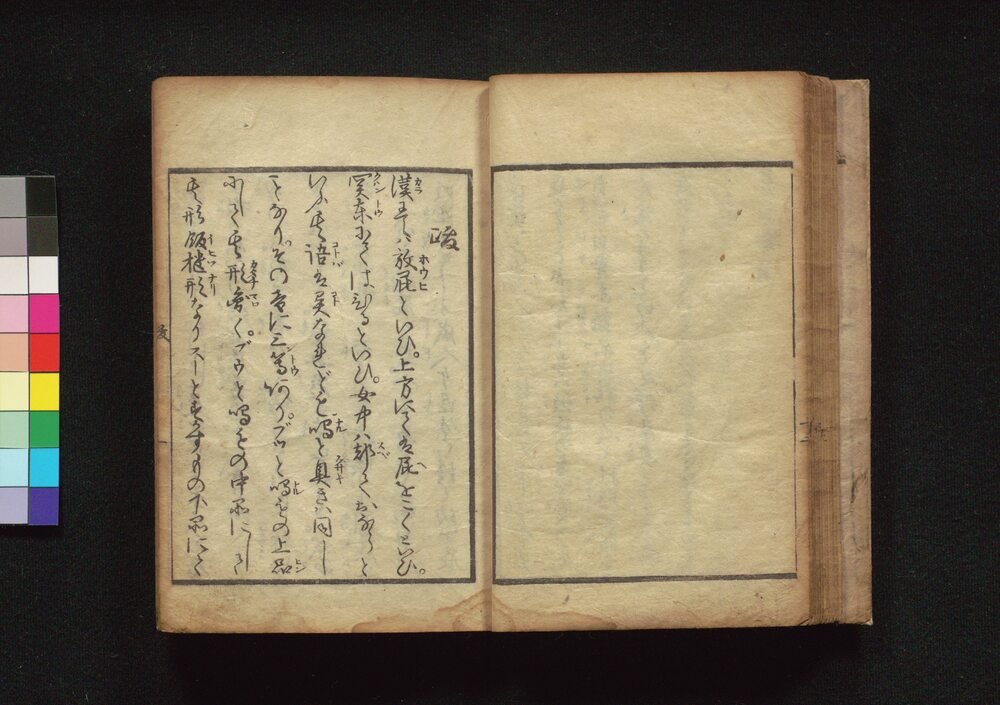 跋
漢にてハ放屁といひ。上方にてハ屁をこくといひ。
関東にてはひるといひ。女中ハ都ておならと
いふ其語は異なれども鳴と臭きハ同じ
ことなり。その音に三等あり。ブツと鳴もの上品
にして其形圓く。ブウと鳴もの中品にして
其形飯櫃形なりスーとすかすもの下品にて